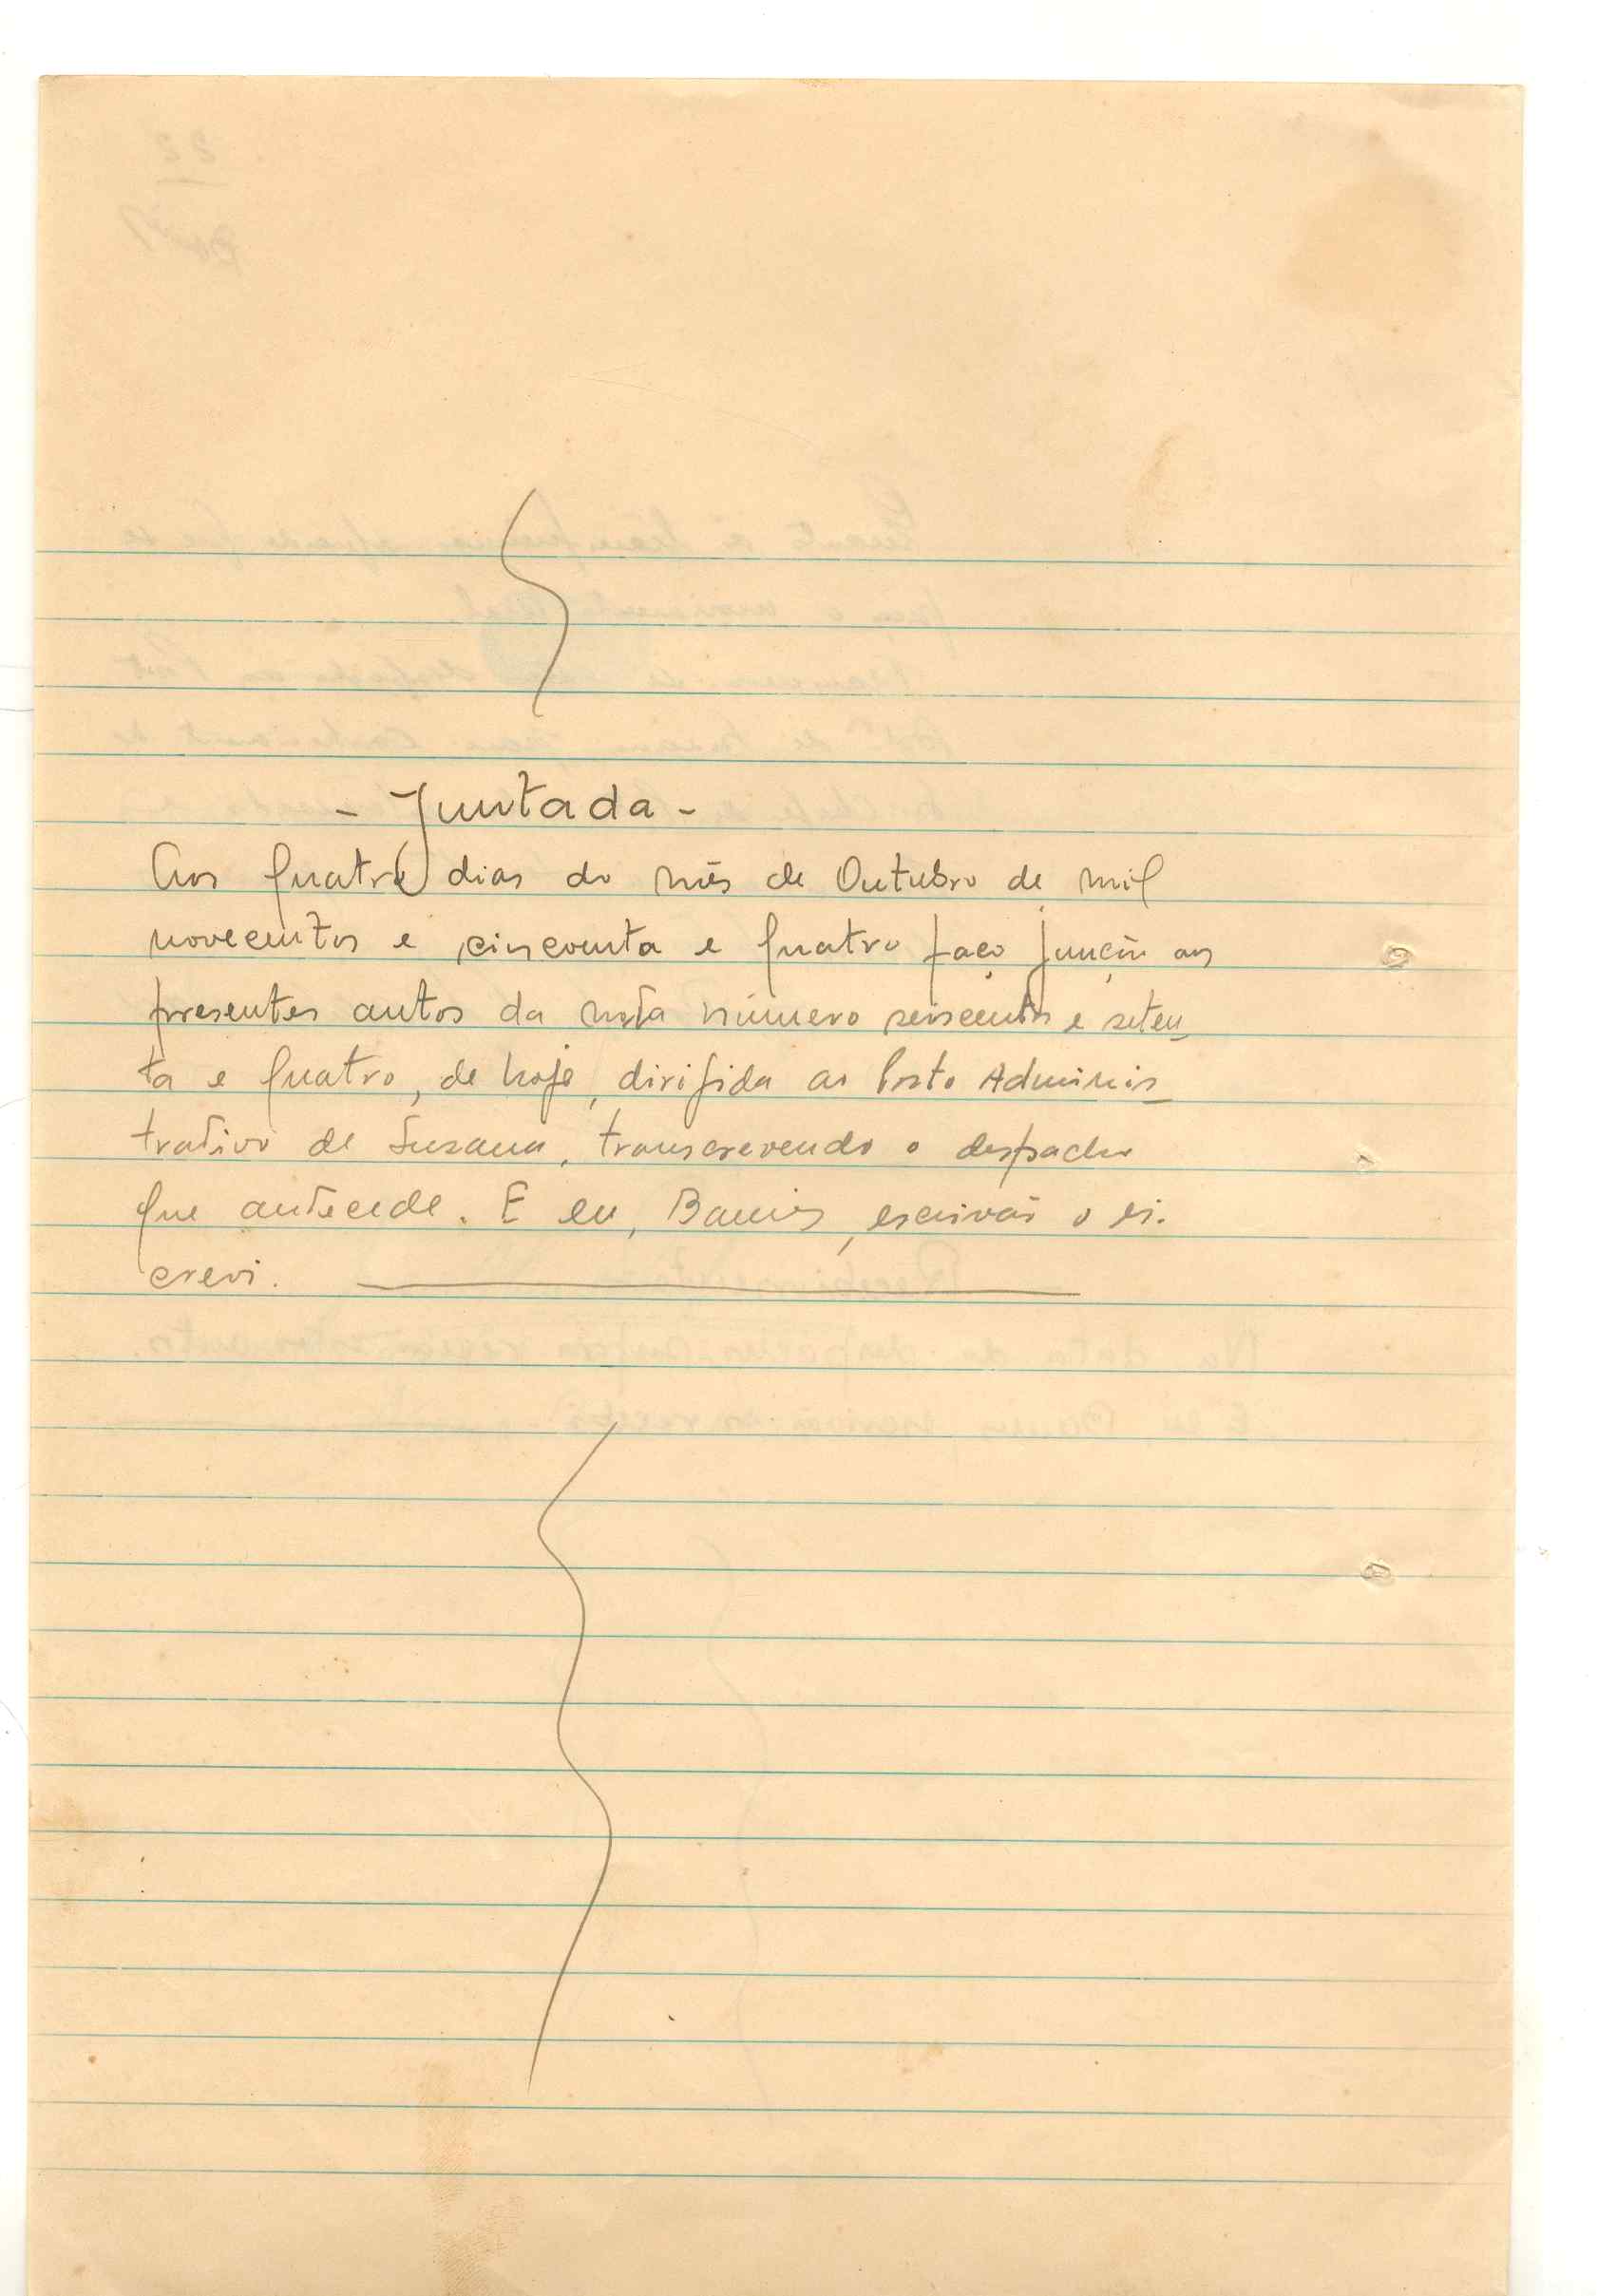 - Juntada -
Aos quatro dias do mês de Outubro de mil
novecentos e cincoenta e quatro faço junção aos
presentes autos da nota número seiscentos e seten_
ta e quatro, de hoje, dirigida ao Posto Adminis_
trativo de Suzana, transcrevendo o despacho
que antecede. E eu, escrivão o es-
crevi.